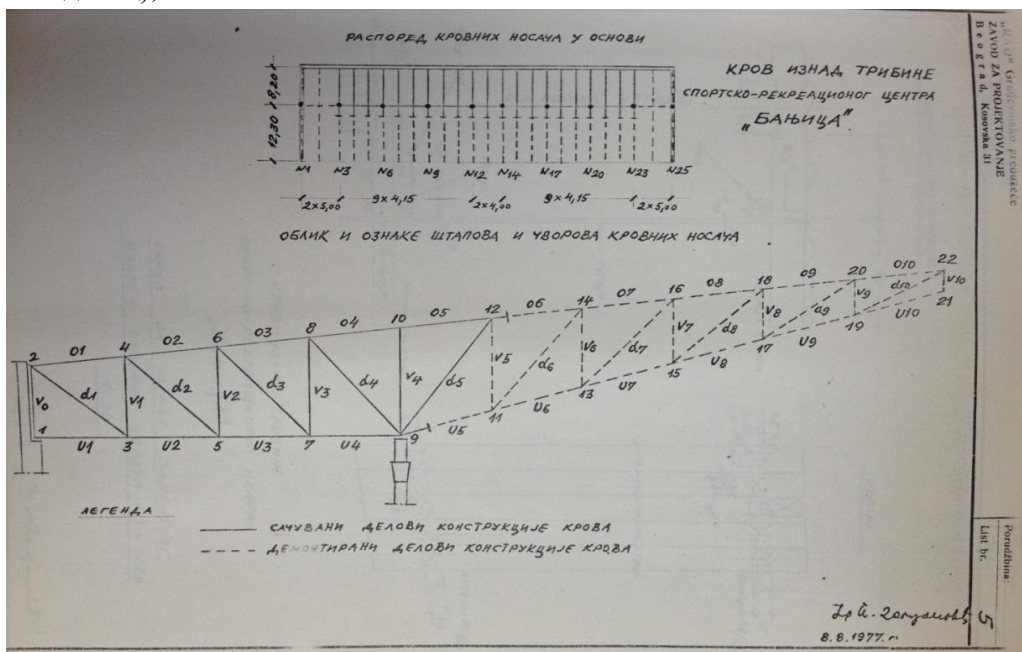 РАСПОРЕД КРОВНИХ НОСАЧА У ОСНОВИ
КРОВ ИЗНАД ТРИБИНЕ
СПОРТСКО-РЕКРЕАЦИОНОГ ЦЕНТРА
„БАЊИЦА"
8,20
12,30
N1 N3 N6 N9 N12 N14 N17 N20 N23 N25
2x5,00 9x4,15 2x4,00 9x4,15 2x5,00
ОБЛИК И ОЗНАКЕ ШТАПОВА И ЧВОРОВА КРОВНИХ НОСАЧА
2 O1 4 O2 6 O3 8 O4 10 O5 12 O6 14 O7 16 O8 18 O9 20 O10 22
V0 d1 V1 d2 V2 d3 V3 d4 V4 d5 V5 d6 V6 d7 V7 d8 V8 d9 V9 d10 V10
1 U1 3 U2 5 U3 7 U4 9 U5 11 U6 13 U7 15 U8 17 U9 19 U10 21
ЛЕГЕНДА
САЧУВАНИ ДЕЛОВИ КОНСТРУКЦИЈЕ КРОВА
ДЕМОНТИРАНИ ДЕЛОВИ КОНСТРУКЦИЈЕ КРОВА
8.8.1977.г.
„RAD" Građevinsko preduzeće
ZAVOD ZA PROJEKTOVANJE
Beograd, Kosovska 31
Porudžbina:
List br. 5